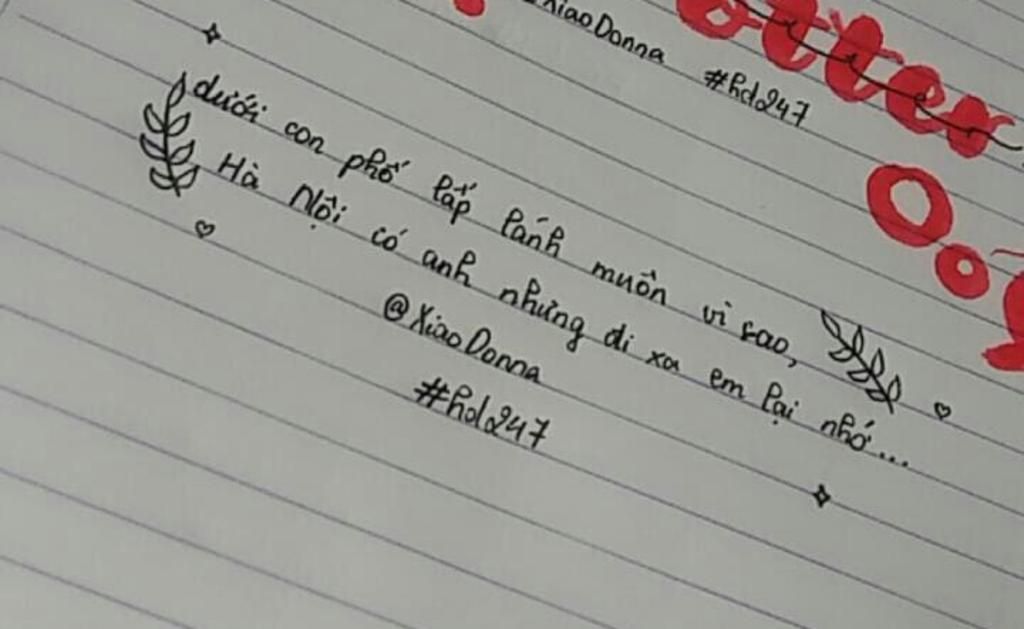 XiaoDonna
#hd247
otter
dưới con phố lấp lánh muôn vì sao,
Hà Nội có anh nhưng đi xa em lại nhớ...
@XiaoDonna
#hd247